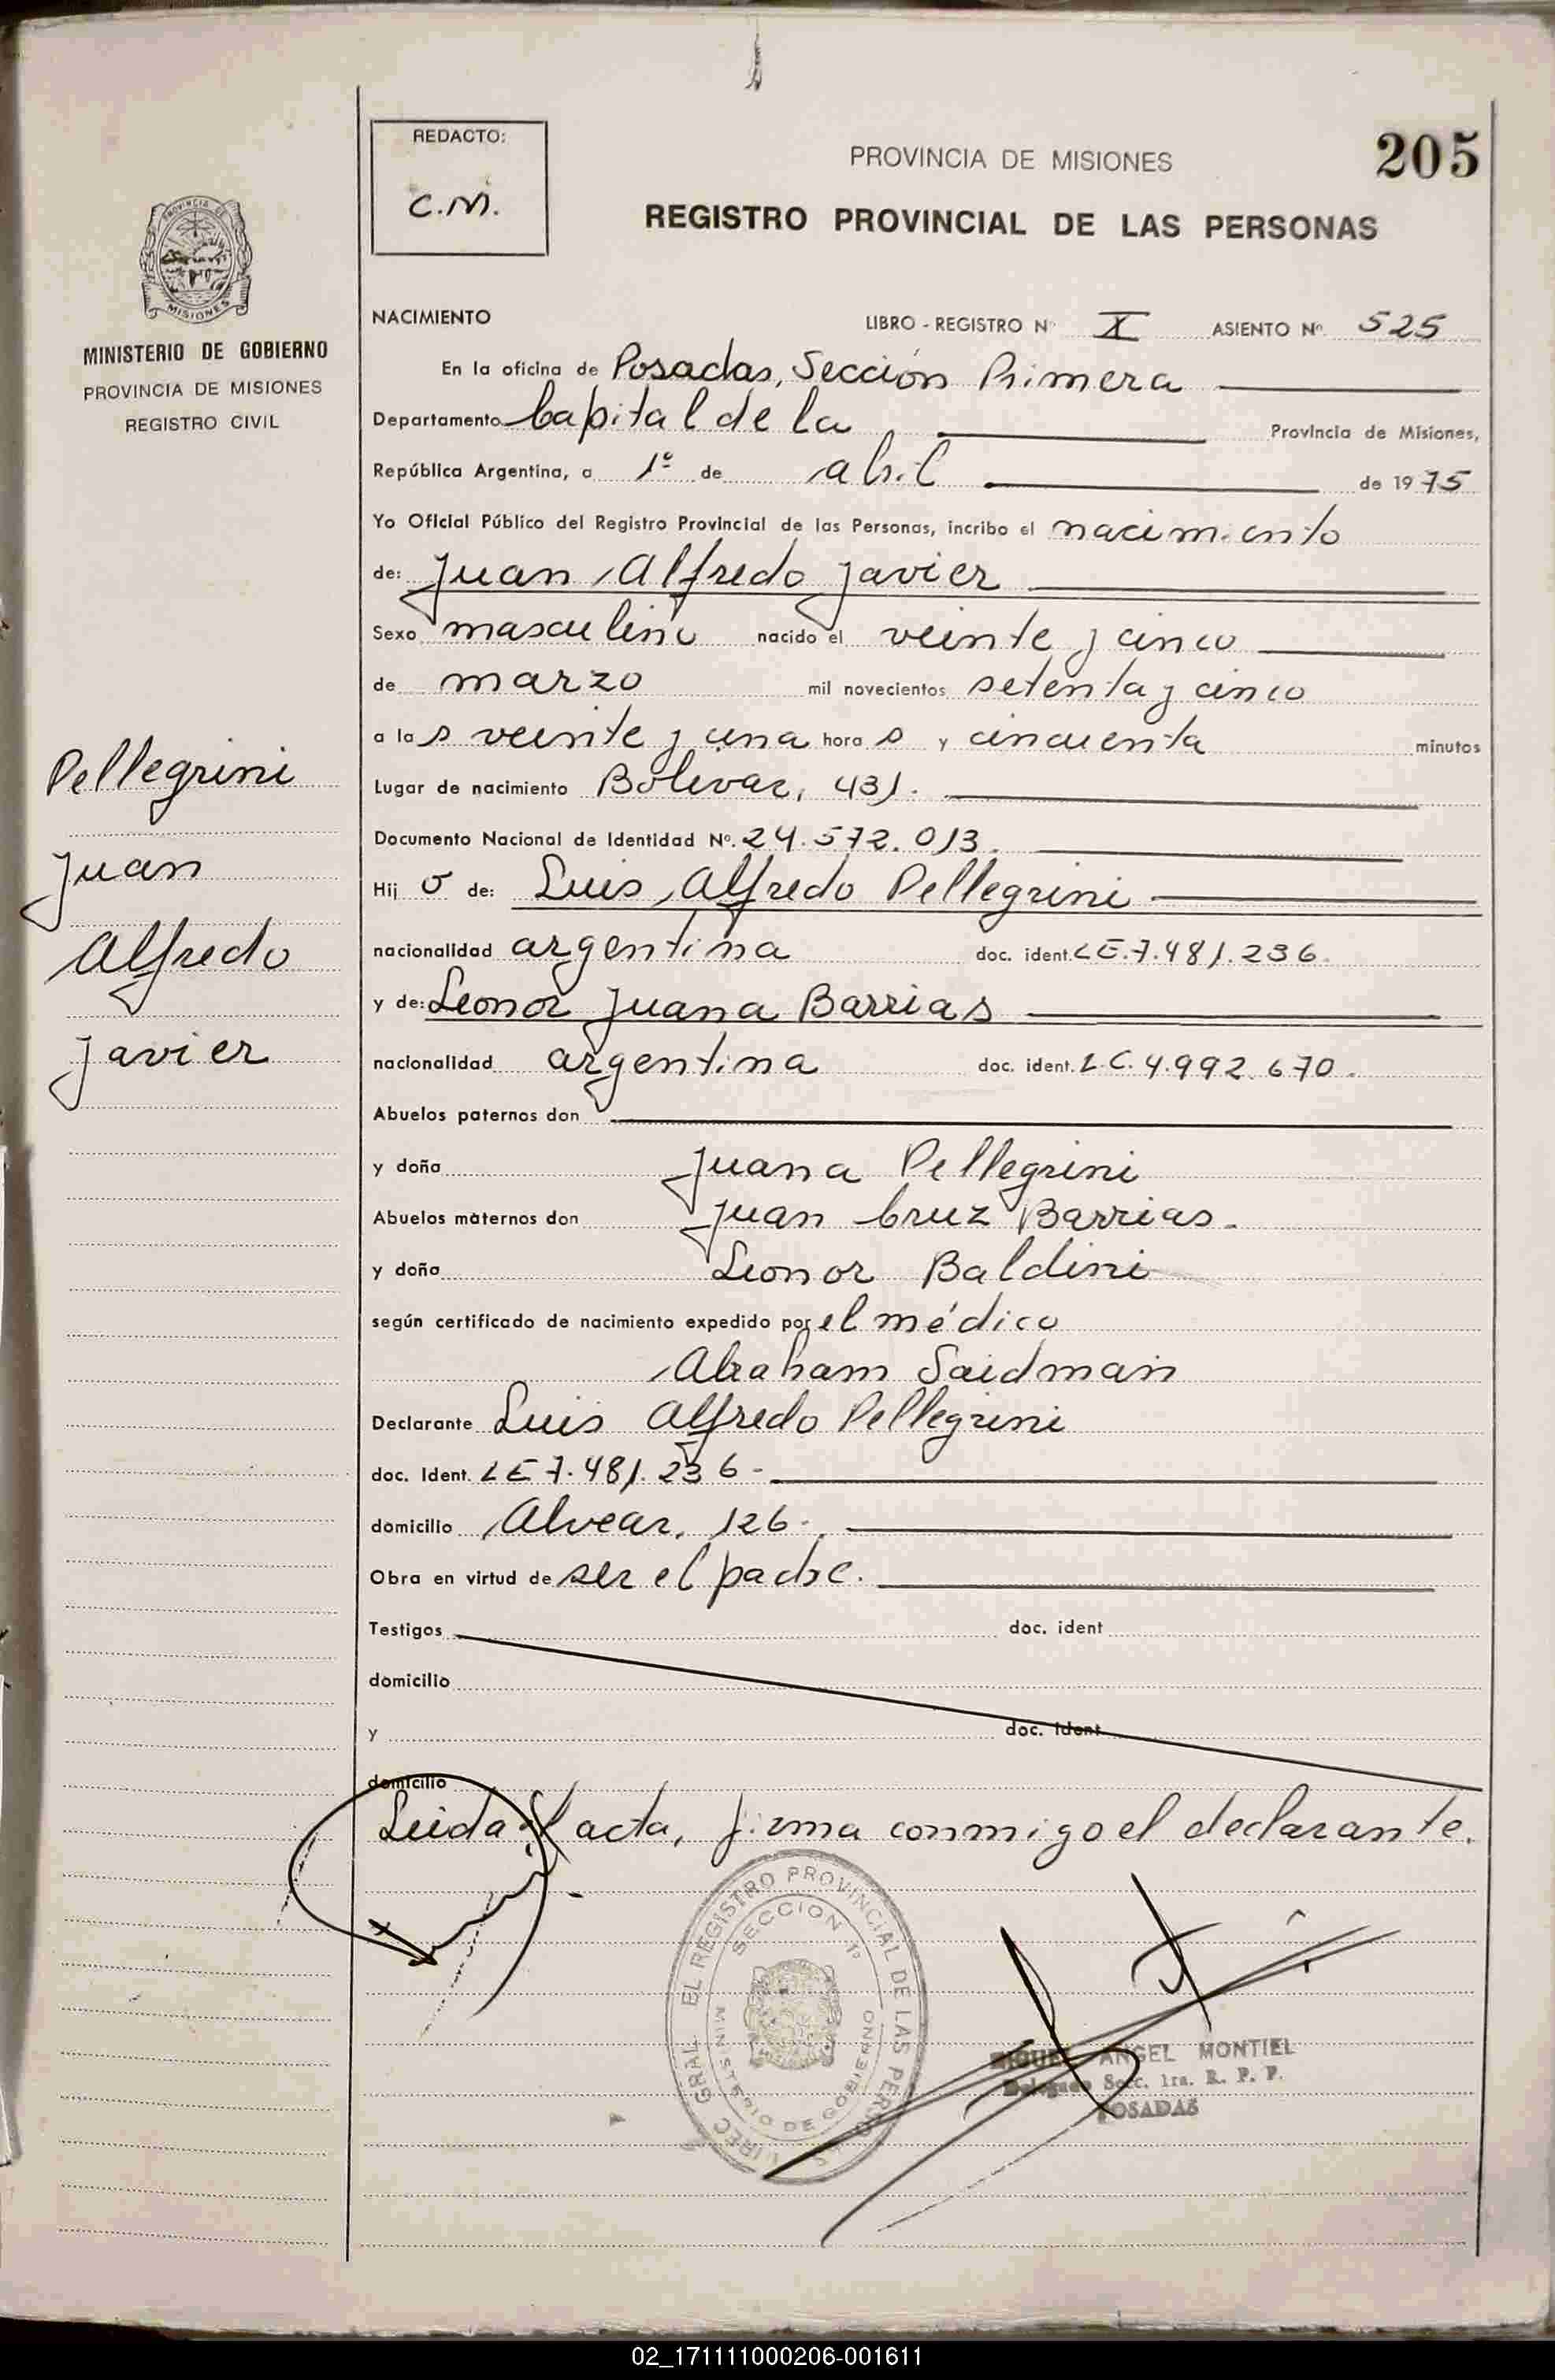 REDACTO:
C.M.
PROVINCIA DE MISIONES
205
REGISTRO PROVINCIAL DE LAS PERSONAS
PROVINCIA DE
MISIONES
MINISTERIO DE GOBIERNO
PROVINCIA DE MISIONES
REGISTRO CIVIL
NACIMIENTO
LIBRO - REGISTRO Nº X ASIENTO Nº. 525
En la oficina de Posadas, Sección Primera
Departamento Capital de la Provincia de Misiones,
República Argentina, a 1º de abril de 1975
Yo Oficial Público del Registro Provincial de las Personas, incribo el nacimiento
de: Juan Alfredo Javier
Sexo masculino nacido el veinte y cinco
de marzo mil novecientos setenta y cinco
a las veinte y una horas y cincuenta minutos
Lugar de nacimiento Bolivar, 431.
Documento Nacional de Identidad Nº. 24.572.013.
Hijo de: Luis Alfredo Pellegrini
nacionalidad argentina doc. ident. LE.7.481.236.
y de: Leonor Juana Barrias
nacionalidad argentina doc. ident. L.C. 4.992.670.
Abuelos paternos don
y doña Juana Pellegrini
Abuelos maternos don Juan Cruz Barrias.
y doña Leonor Baldini
según certificado de nacimiento expedido por el médico
Abraham Saidman
Declarante Luis Alfredo Pellegrini
doc. Ident. LE 7.481.236-
domicilio Alvear, 126.
Obra en virtud de ser el padre.
Testigos doc. ident
domicilio
y doc. ident
domicilio
Leida el acta, firma conmigo el declarante.
Pellegrini
Juan
Alfredo
Javier
DIREC. GRAL. EL REGISTRO PROVINCIAL DE LAS PERSONAS
SECCION 1ª
MINISTERIO DE GOBIERNO
MIGUEL ANGEL MONTIEL
Delegado Secc. 1ra. R. P. P.
POSADAS
02_171111000206-001611